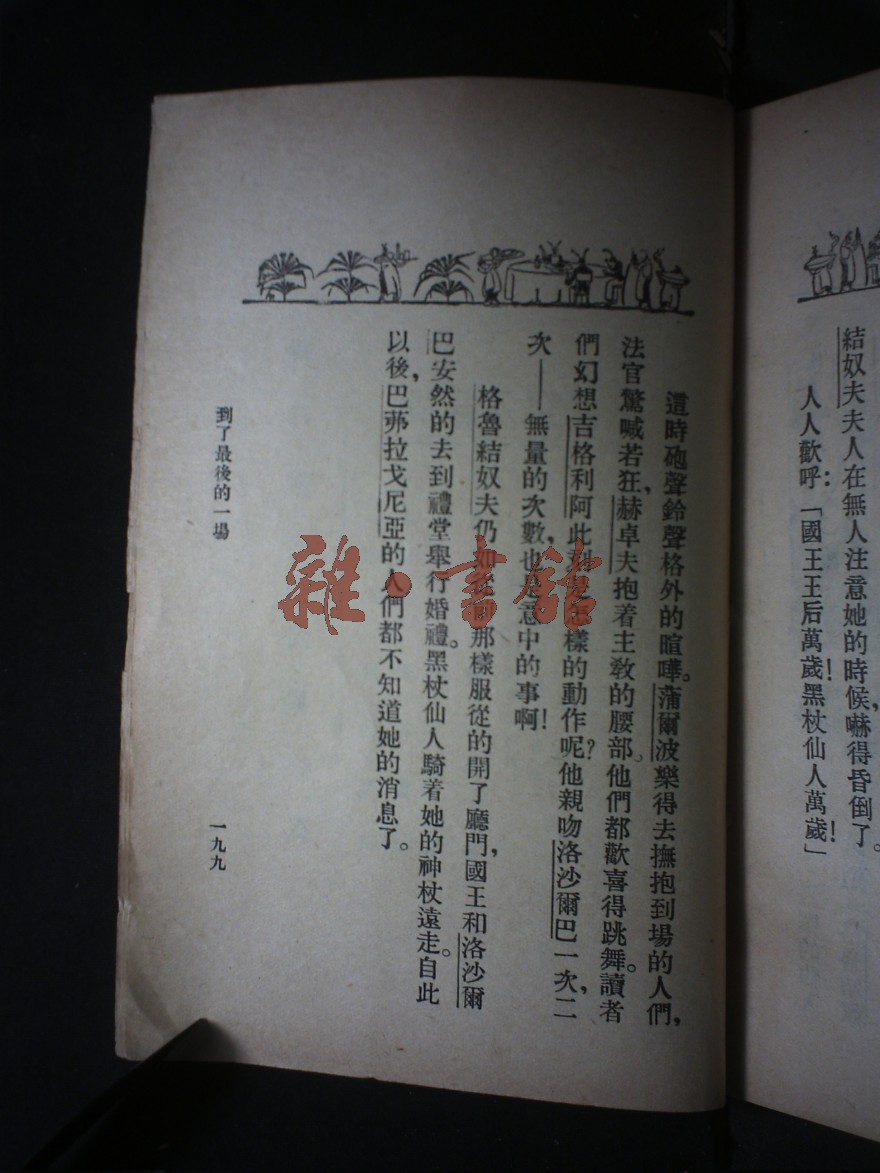 結奴夫夫人在無人注意她的時候,嚇得昏倒了。
人人歡呼:「國王王后萬歲!黑杖仙人萬歲!」
這時砲聲鈴聲格外的暄嘩。蒲爾波樂得去撫抱到場的人們,
法官驚喊若狂,赫卓夫抱着主教的腰部。他們都歡喜得跳舞。讀者
們幻想吉格利阿此怎樣的動作呢?他親吻洛沙爾巴一次,二
次——無量的次數,也是意中的事啊!
格魯結奴夫仍如那樣服從的開了廳門,國王和洛沙爾
巴安然的去到禮堂舉行婚禮。黑杖仙人騎着她的神杖遠走。自此
以後,巴弗拉戈尼亞的人們都不知道她的消息了。
到了最後的一場
一九九
雜·書館